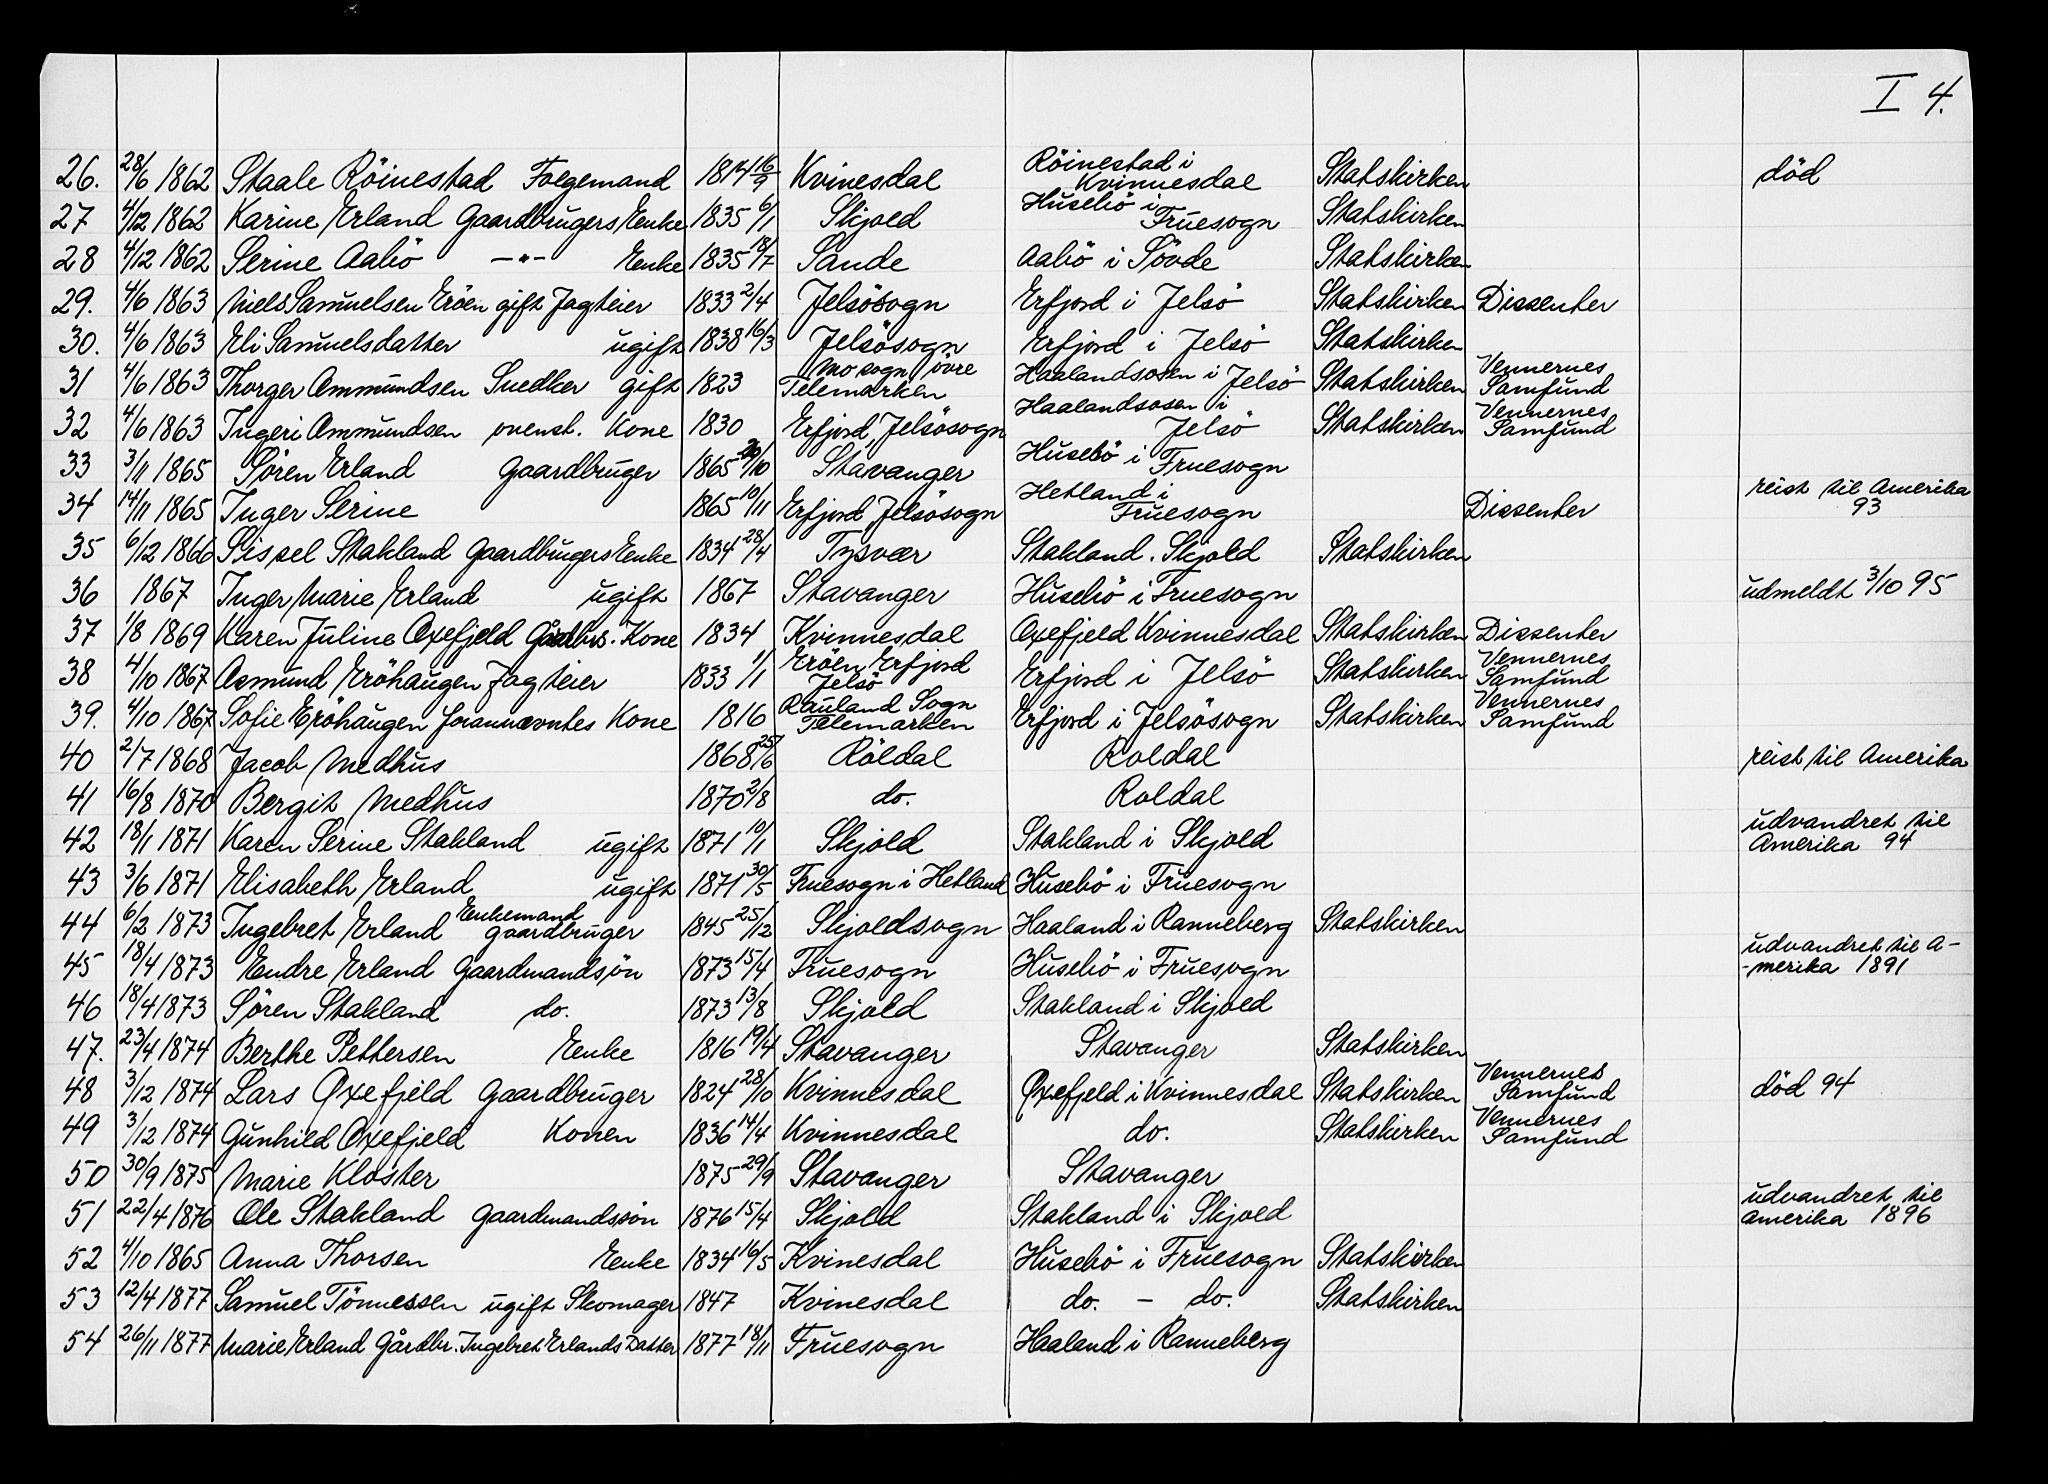 I 4.
26. 28/6 1862 Staale Röinestad Folgemand 1814 16/9 Kvinesdal Röinestad i Kvinnesdal Statskirken död
27 4/12 1862 Karine Erland Gaardbrugers Enke 1835 6/1 Skjold Husebö i Fruesogn Statskirken
28 4/12 1862 Serine Aabö —"— Enke 1835 18/7 Sande Aabö i Sövde Statskirken
29. 4/6 1863 Niels Samuelsen Eröen gift Jagteier 1833 2/4 Jelsösogn Erfjord i Jelsö Statskirken Dissenter
30. 4/6 1863 Eli Samuelsdatter ugift 1838 16/3 Jelsösogn Erfjord i Jelsö Statskirken
31 4/6 1863 Thorger Ammundsen Snedker gift 1823 Mo sogn, övre Telemarken Haalandsosen i Jelsö Statskirken Vennernes Samfund
32 4/6 1863 Ingeri Ammundsen ovenst. Kone 1830 Erfjord, Jelsösogn Haalandsosen i Jelsö Statskirken Vennernes Samfund
33 3/11 1865 Sören Erland Gaardbruger 1865 20/10 Stavanger Husebö i Fruesogn
34 14/11 1865 Inger Serine 1865 10/11 Erfjord Jelsösogn Hetland i Fruesogn Dissenter reist til Amerika 93
35 6/2 1866 Sissel Stakland Gaardbrugers Enke 1834 28/4 Tysvær Stakland. Skjold Statskirken
36 1867 Inger Marie Erland ugift 1867 Stavanger Husebö i Fruesogn udmeldt 3/10 95
37 1/8 1869 Karen Juline Oxefjeld Gårdbr. Kone 1834 Kvinnesdal Oxefjeld Kvinnesdal Statskirken Dissenter
38 4/10 1867 Asmund Eröhaugen Jagteier 1833 1/1 Eröen Erfjord Jelsö Erfjord i Jelsö Statskirken Vennernes Samfund
39. 4/10 1867 Sofie Eröhaugen forannævntes Kone 1816 Rauland Sogn Telemarken Erfjord i Jelsösogn Statskirken Vennernes Samfund
40 2/7 1868 Jacob Medhus 1868 25/6 Röldal Roldal reist til Amerika
41 16/8 1870 Bergit Medhus 1870 2/8 do. Roldal
42 18/1 1871 Karen Serine Stakland ugift 1871 10/1 Skjold Stakland i Skjold udvandret til Amerika 94
43 3/6 1871 Elisabeth Erland ugift 1871 30/5 Fruesogn i Hetland Husebö i Fruesogn
44 6/2 1873 Ingebret Erland Enkemand gaardbruger 1845 25/12 Skjoldsogn Haaland i Ranneberg Statskirken
45 18/4 1873 Endre Erland Gaardmandsøn 1873 15/4 Fruesogn Husebö i Fruesogn udvandret til A- -merika 1891
46 18/4 1873 Sören Stakland do. 1873 13/8 Skjold Stakland i Skjold
47. 23/4 1874 Berthe Pettersen Enke 1816 19/4 Stavanger Stavanger Statskirken
48 3/12 1874 Lars Oxefjeld Gaardbruger 1824 28/10 Kvinnesdal Oxefjeld i Kvinnesdal Statskirken Vennernes Samfund död 94
49 3/12 1874 Gunhild Oxefjeld Konen 1836 14/4 Kvinnesdal do. Statskirken Vennernes Samfund
50 30/9 1875 Marie Kloster 1875 29/9 Stavanger Stavanger
51 22/4 1876 Ole Stakland Gaardmandssön 1876 15/4 Skjold Stakland i Skjold udvandret til Amerika 1896
52 4/10 1865 Anna Thorsen Enke 1834 16/5 Kvinesdal Husebö i Fruesogn Statskirken
53 12/4 1877 Samuel Tönnessen ugift Skomager 1847 Kvinesdal do. — do. Statskirken
54 26/11 1877 Marie Erland Gårdbr. Ingebret Erlands Datter 1877 18/11 Fruesogn Haaland i Ranneberg